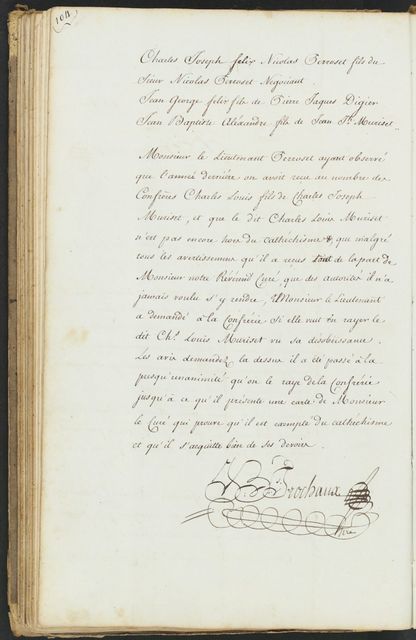 108
Charles Joseph felix Nicolas Perroset fils du
Sieur Nicolas Perroset Negociant
Jean George felix fils de Pierre Jaques Digier
Jean Baptiste Aléxandre fils de Jean Jb Muriset
Monsieur le Lieutenant Perroset ayant observé
que l'année dernière on avoit recu au nombre des
Confrères Charles Louis fils de Charles Joseph
Muriset, et que le dit Charles Louis Muriset
n'est pas encore hors du cathéchisme &, que malgré
tous les avertissemens qu'il a reçus tant de la part de
Monsieur notre Révérend Curé, que des autorités il n'a
jamais voulu s'y rendre, Monsieur le Lieutenant
a demandé à la Confrérie Si elle veut en rayer le
dit Chs Louis Muriset vu sa désobéissance.
Les avis demandez la dessus il a été passé à la
presqu'unanimité qu'on le raye de la Confrérie
jusqu'à ce qu'il présente une carte de Monsieur
le Curé qui prouve qu'il est exempté du cathéchisme
et qu'il s'aquitte bien de ses devoirs.
Frochaux